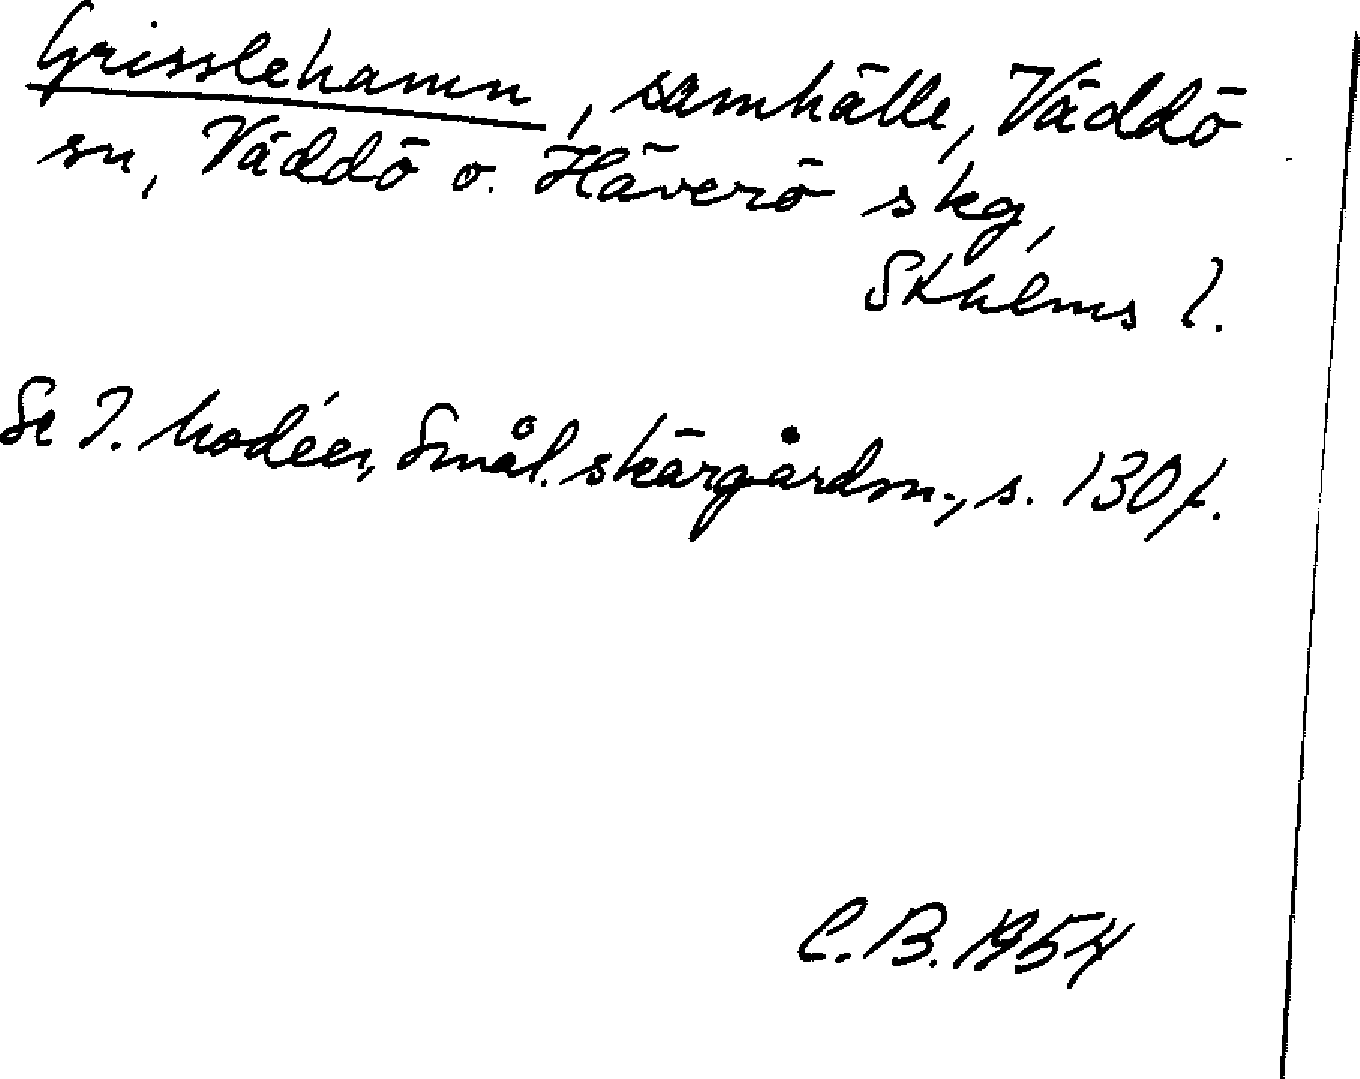 Grisslehamn, samhälle, Väddö
sn, Väddö o. Häverö skg,
Sthlms l.
Se I. Modéer, Smål. skärgårdsn., s. 130f.
C.B. 1954